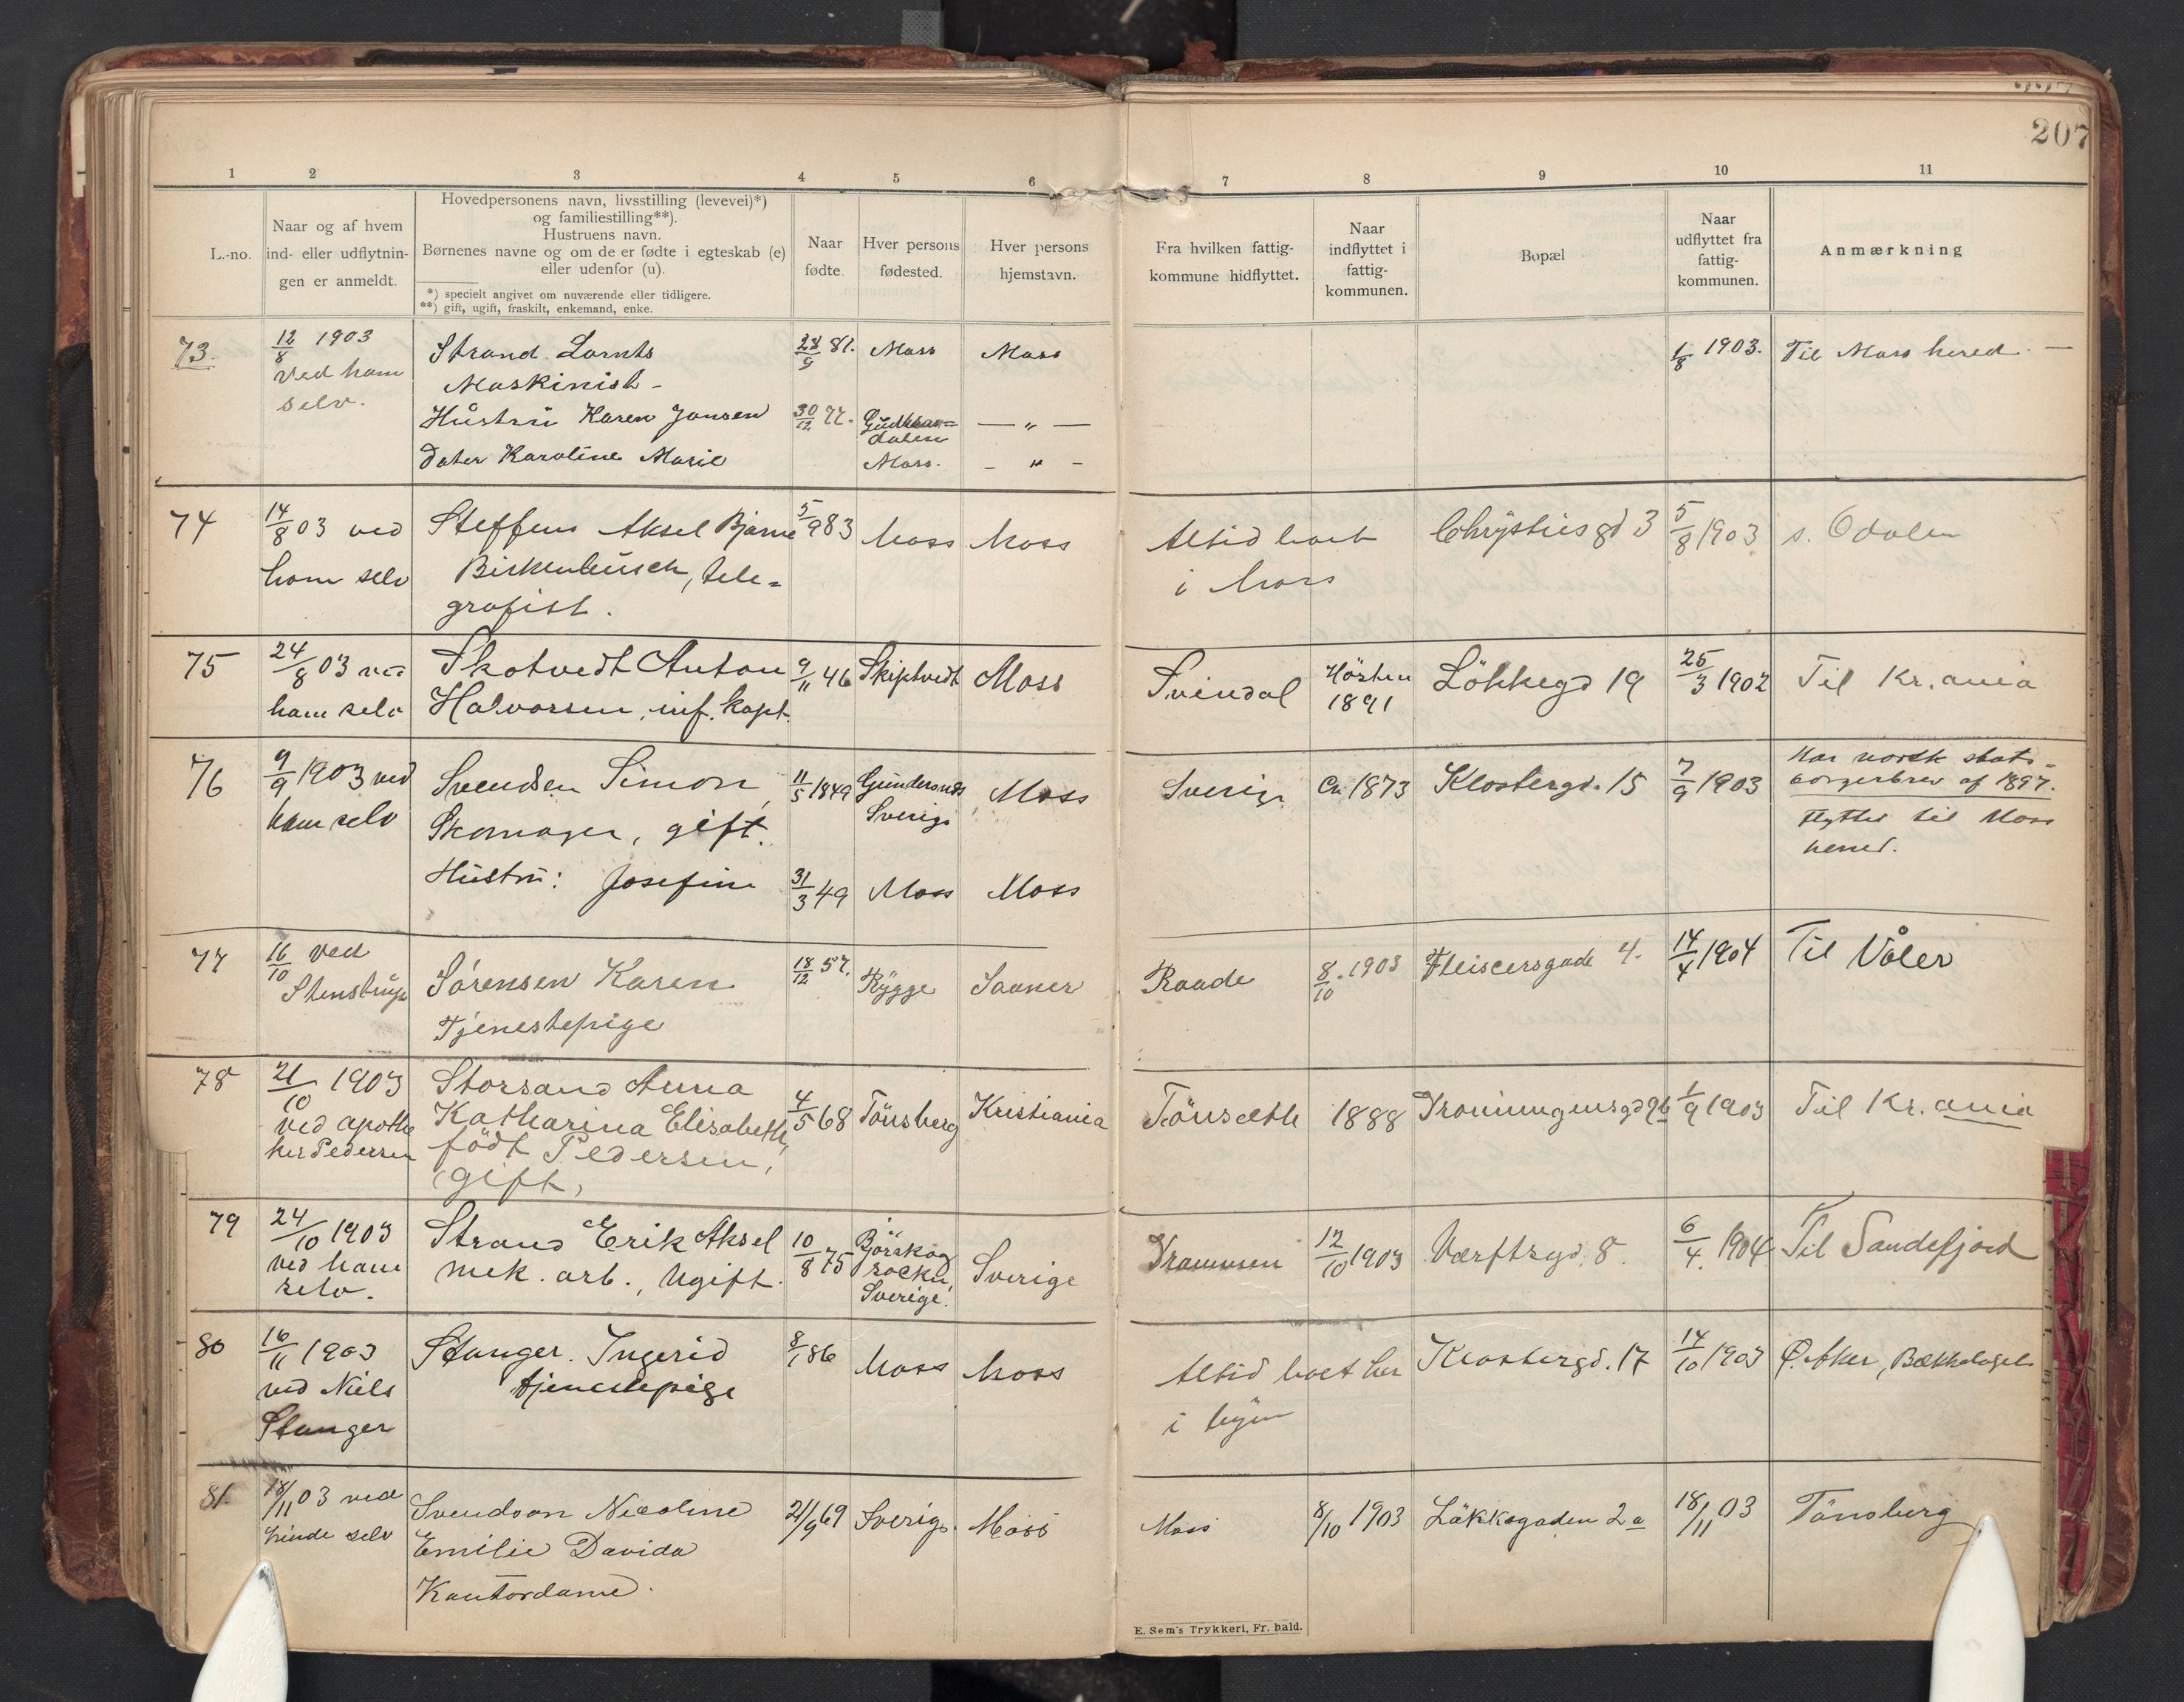 207
1 2 3 4 5 6 7 8 9 10 11
L.-no.
Naar og af hvem
ind- eller udflytnin-
gen er anmeldt.
Hovedpersonens navn, livsstilling (levevei)*)
og familiestilling**).
Hustruens navn.
Børnenes navne og om de er fødte i egteskab (e)
eller udenfor (u).
*) specielt angivet om nuværende eller tidligere.
**) gift, ugift, fraskilt, enkemand, enke.
Naar
fødte.
Hver persons
fødested.
Hver persons
hjemstavn.
Fra hvilken fattig-
kommune hidflyttet.
Naar
indflyttet i
fattig-
kommunen.
Bopæl
Naar
udflyttet fra
fattig-
kommunen.
Anmærkning
73.
12/8 1903
Ved ham
selv.
Strand Lornts
Maskinist -
Hustru Karen Jansen
Dater Karoline Marie
28/9 81.
30/12 77.
Moss
Gudbran=
dalen
Moss.
Moss
— " —
- " -
1/8 1903.
Til Moss hered. —
74
14/8 03 ved
ham selv
Steffens Aksel Bjarne
Birkenbusch, tele=
grafist.
5/9 83
Moss
Moss
Altid boet
i Moss
Chrystiesgd 3
5/8 1903
s. Odalen
75
24/8 03 ved
ham selv
Skotvedt Anton
Halvorsen, inf. kapt.
9/11 46
Skiptvedt
Moss
Svindal
Hösten
1891
Lökkegd 19
25/3 1902
Til Kr.ania
76
9/9 1903 ved
ham selv
Svendsen Simon,
Skomager, gift.
Hustru: Josefine
11/5 1849
31/3 49
Sverige
Moss
Moss
Moss
Sverige
Ca. 1873
Klostergd. 15
7/9 1903
Har norsk stats-
borgerbrev af 1897.
Flyttet til Moss
hered.
77
16/10 ved
Stenstrup
Sørensen Karen
Tjenestepige
18/12 57.
Rygge
Sauner
Raade
8/10 . 1903
Fleiscersgade 4.
14/4 1904
Til Våler
78
21/10 1903
ved apothe
ker Pedersen
Storsand Anna
Katharina Elisabeth,
født Pedersen,
gift,
4/5 68
Tönsberg
Kristiania
Tönseth
1888
Droningensgd 9b
1/9 1903
Til Kr.ania
79
24/10 1903
ved ham
selv.
Strand Erik Aksel
mek. arb., Ugift.
10/8 75
Björskog
socken,
Sverige.
Sverige
Drammen
12/10 1903
Værftsgd. 8.
6/4. 1904
Til Sandefjord
80
16/11 1903
ved Niels
Stanger
Stanger. Ingerid
tjenestepige
8/1 86
Moss
Moss
Altid boet her
i byen
Klostergd. 17
14/10 1903
Ø. Aker, Bækkelaget
81.
18/11 03 ved
hinde selv
Svendson Nicoline
Emilie Davida
Kontordame.
21/9 69
Sverige.
Moss
Moss
8/10 1903
Løkkegaden 2a
18/11 03
Tönsberg
E. Sem's Trykkeri, Fr. hald.